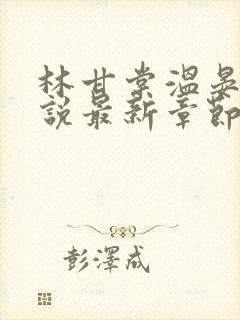 林甘棠温晏
說最新章節
彭澤成